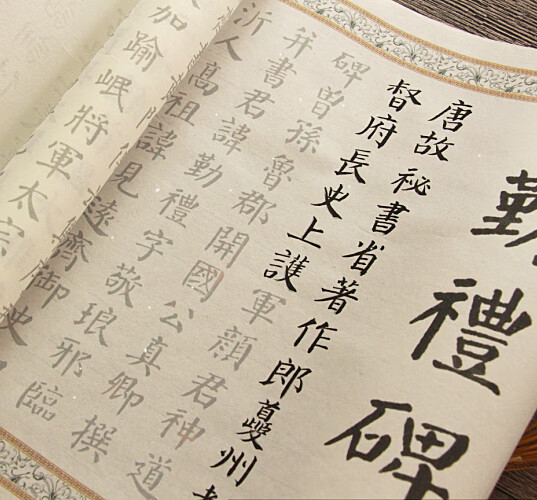 勤禮碑
唐故秘書省著作郎夔州
督府長史上護軍顏君神道
碑曾孫魯郡開國公真卿撰
并書君諱勤禮字敬琅邪臨
沂人高祖諱見遠齊御史
加踰岷將軍太宗